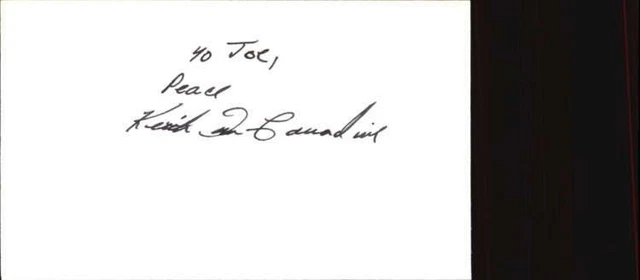 yo Joe,
Peace
Keith Carradine